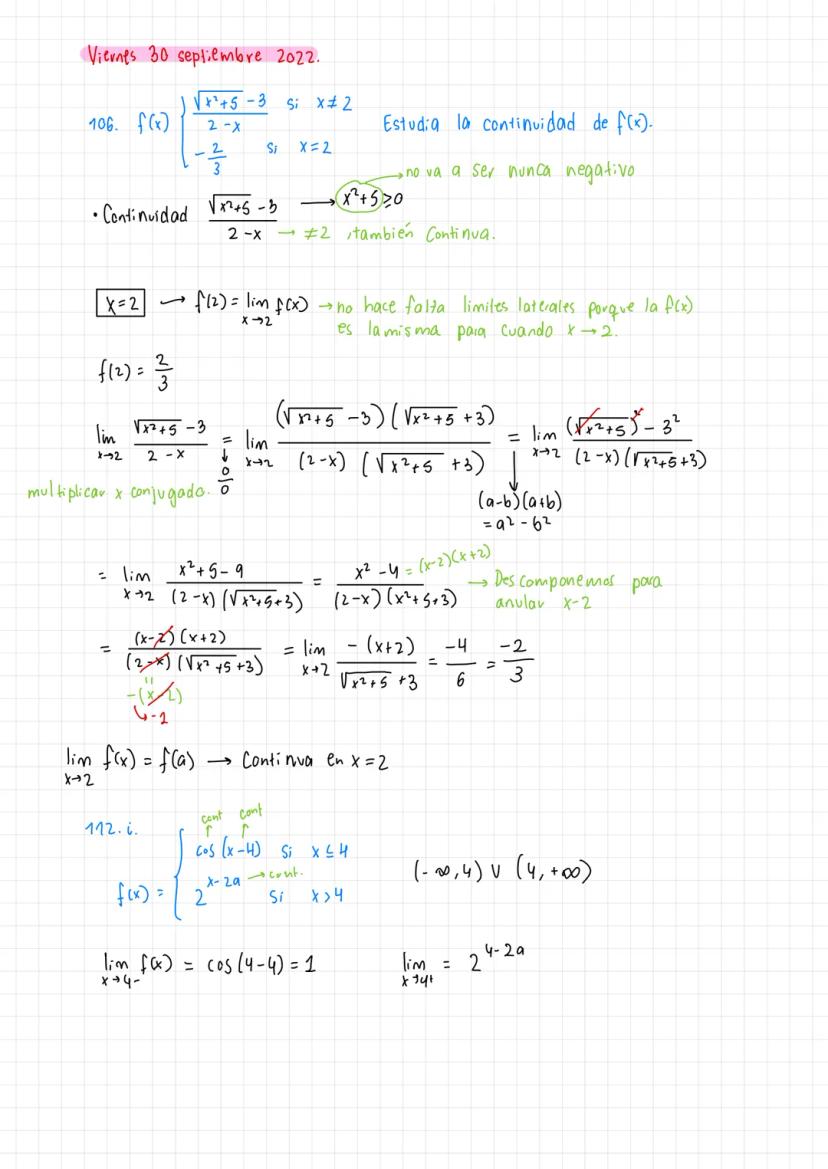 Viernes 30 septiembre 2022.
106. f(x) { (√(x²+5) -3)/(2-x) si x≠2
-2/3 si x=2
Estudia la continuidad de f(x).
→ no va a ser nunca negativo
• Continuidad (√(x²+5) -3)/(2-x) → x²+5≥0
→ ≠2, también continua.
x=2 → f(2) = lim x→2 f(x) → no hace falta limites laterales porque la f(x)
es la misma para cuando x→2.
f(2) = 2/3
lim x→2 (√(x²+5) -3)/(2-x) = lim x→2 ((√(x²+5) -3)(√(x²+5) +3))/((2-x)(√(x²+5) +3)) = lim x→2 ((√(x²+5))² - 3²)/((2-x)(√(x²+5)+3))
↓ 0/0
multiplicar x conjugado.
↓ (a-b)(a+b)
= a² - b²
= lim x→2 (x²+5-9)/((2-x)(√(x²+5)+3)) = (x²-4)/((2-x)(x²+5+3)) = (x-2)(x+2)
→ Descomponemos para
anular x-2
= ((x-2)(x+2))/((2-x)(√(x²+5)+3)) = lim x→2 (-(x+2))/(√(x²+5) +3) = -4/6 = -2/3
=
-(x-2)
↳ -1
lim x→2 f(x) = f(a) → Continua en x=2
112. i.
cont cont
f(x) = { cos(x-4) si x≤4
2^(x-2a) → cont. si x>4
(-∞,4) ∪ (4,+∞)
lim x→4- f(x) = cos(4-4) = 1
lim x→4+ = 2^(4-2a)